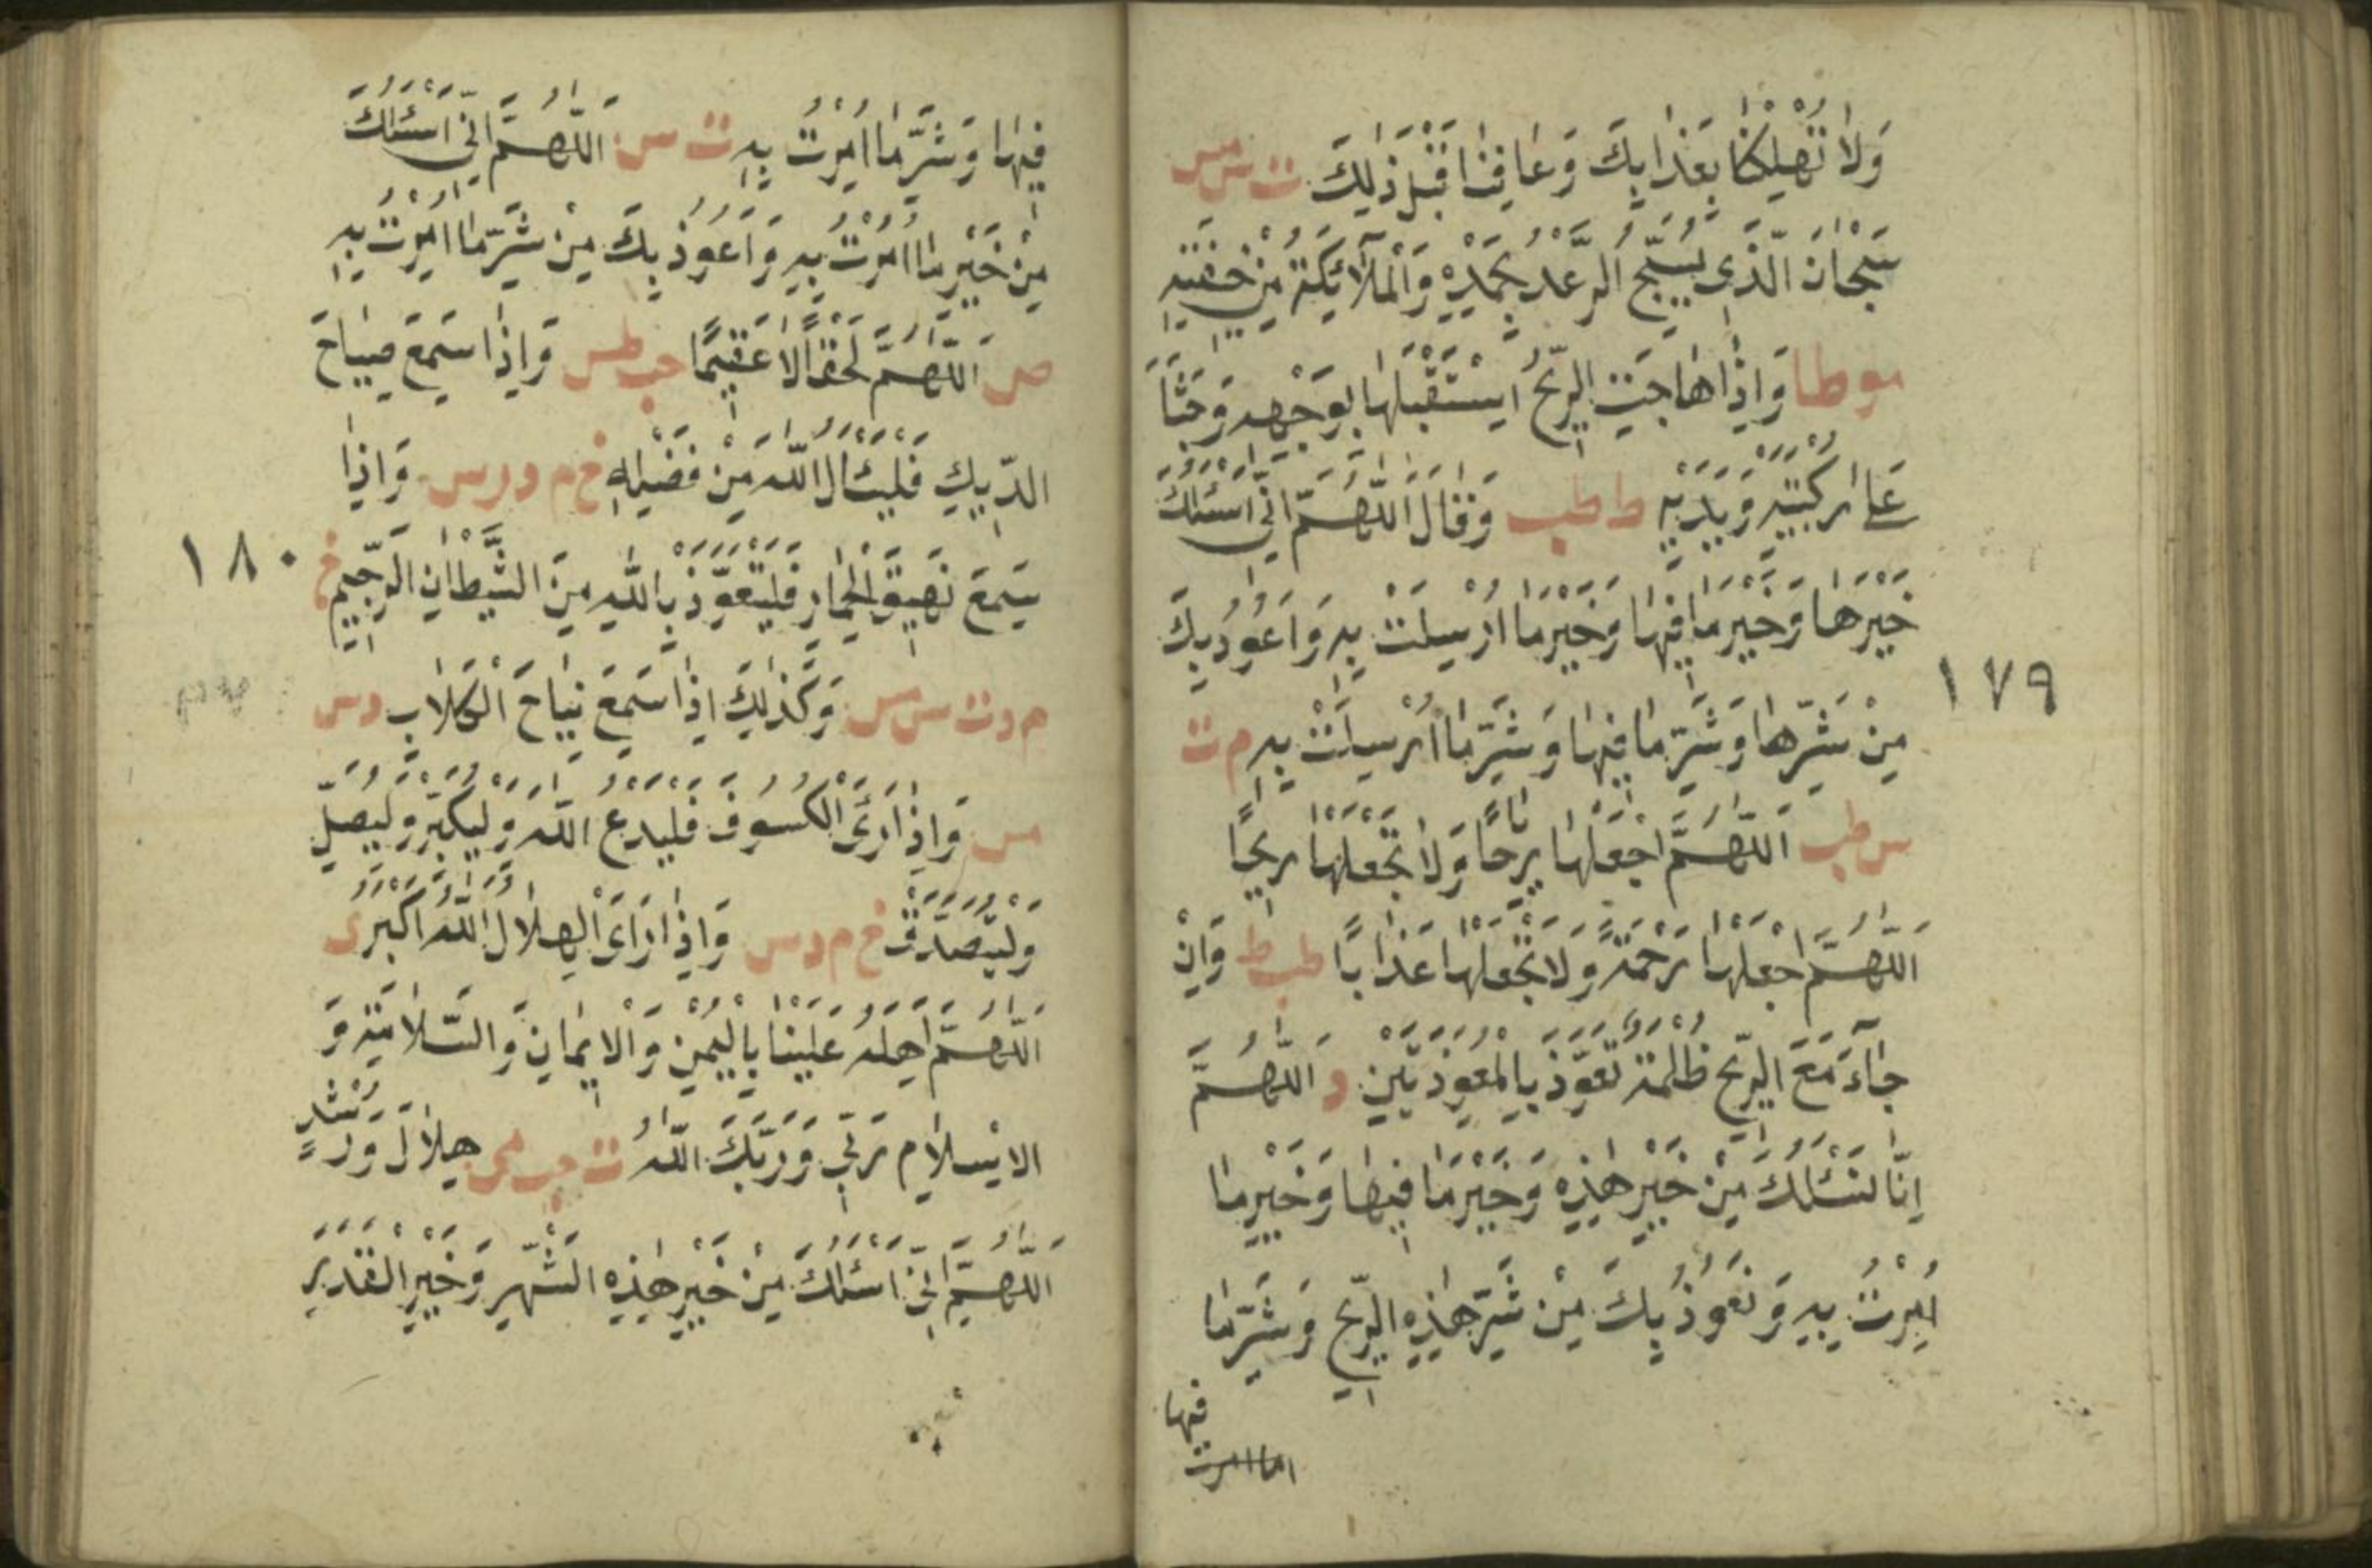 وَلَا تُهْلِكْنَا بِعَذَابِكَ وَعَافِنَا قَبْلَ ذٰلِكَ ت س مس
سُبْحَانَ الَّذِي يُسَبِّحُ الرَّعْدُ بِحَمْدِهِ وَالْمَلَآئِكَةُ مِنْ خِيفَتِهِ
موطا وَاِذَا هَاجَتِ الرِّيحُ اسْتَقْبَلَهَا بِوَجْهِهِ وَجَثَا
عَلَى رُكْبَتَيْهِ وَيَدَيْهِ ط طب وَقَالَ اَللّٰهُمَّ اِنِّي اَسْئَلُكَ
خَيْرَهَا وَخَيْرَ مَا فِيهَا وَخَيْرَ مَا اُرْسِلَتْ بِهِ وَاَعُوذُ بِكَ
١٧٩
مِنْ شَرِّهَا وَشَرِّ مَا فِيهَا وَشَرِّ مَا اُرْسِلَتْ بِهِ م ت
س طب اَللّٰهُمَّ اجْعَلْهَا رِيَاحًا وَلَا تَجْعَلْهَا رِيحًا
اَللّٰهُمَّ اجْعَلْهَا رَحْمَةً وَلَا تَجْعَلْهَا عَذَابًا ط طب وَاِنْ
جَآءَ مَعَ الرِّيحِ ظُلْمَةٌ تَعَوَّذَ بِالْمُعَوِّذَتَيْنِ د اَللّٰهُمَّ
اِنَّا نَسْئَلُكَ مِنْ خَيْرِ هٰذِهِ وَخَيْرِ مَا فِيهَا وَخَيْرِ مَا
اُمِرْتَ بِهِ وَنَعُوذُ بِكَ مِنْ شَرِّ هٰذِهِ الرِّيحِ وَشَرِّ مَا
فيها
ما امرت
فِيهَا وَشَرِّ مَا اُمِرْتَ بِهِ ت س اَللّٰهُمَّ اِنِّي اَسْئَلُكَ
مِنْ خَيْرِ مَا اُمِرْتَ بِهِ وَاَعُوذُ بِكَ مِنْ شَرِّ مَا اُمِرْتَ بِهِ
ص اَللّٰهُمَّ لَقْحًا لَا عَقِيمًا حب طس وَاِذَا سَمِعَ صِيَاحَ
الدِّيكِ فَلْيَسْئَالِ اللّٰهَ مِنْ فَضْلِهِ خ م د ت س وَاِذَا
سَمِعَ نَهِيقَ الْحِمَارِ فَلْيَتَعَوَّذْ بِاللّٰهِ مِنَ الشَّيْطَانِ الرَّجِيمِ خ
١٨٠
م د ت س مس وَكَذٰلِكَ اِذَا سَمِعَ نِبَاحَ الْكِلَابِ د س
مس وَاِذَا رَئَى الْكُسُوفَ فَلْيَدْعُ اللّٰهَ وَلْيُكَبِّرْ وَلْيُصَلِّ
وَلْيَتَصَدَّقْ خ م د س وَاِذَا رَاَى الْهِلَالَ اَللّٰهُ اَكْبَرُ ى
اَللّٰهُمَّ اَهِلَّهُ عَلَيْنَا بِالْيُمْنِ وَالْاِيمَانِ وَالسَّلَامَةِ وَ
الْاِسْلَامِ رَبِّي وَرَبُّكَ اللّٰهُ ت حب مى هِلَالَ وَرُشْدٍ
اَللّٰهُمَّ اِنِّي اَسْئَلُكَ مِنْ خَيْرِ هٰذِهِ الشَّهْرِ وَخَيْرِ الْقَدَرِ